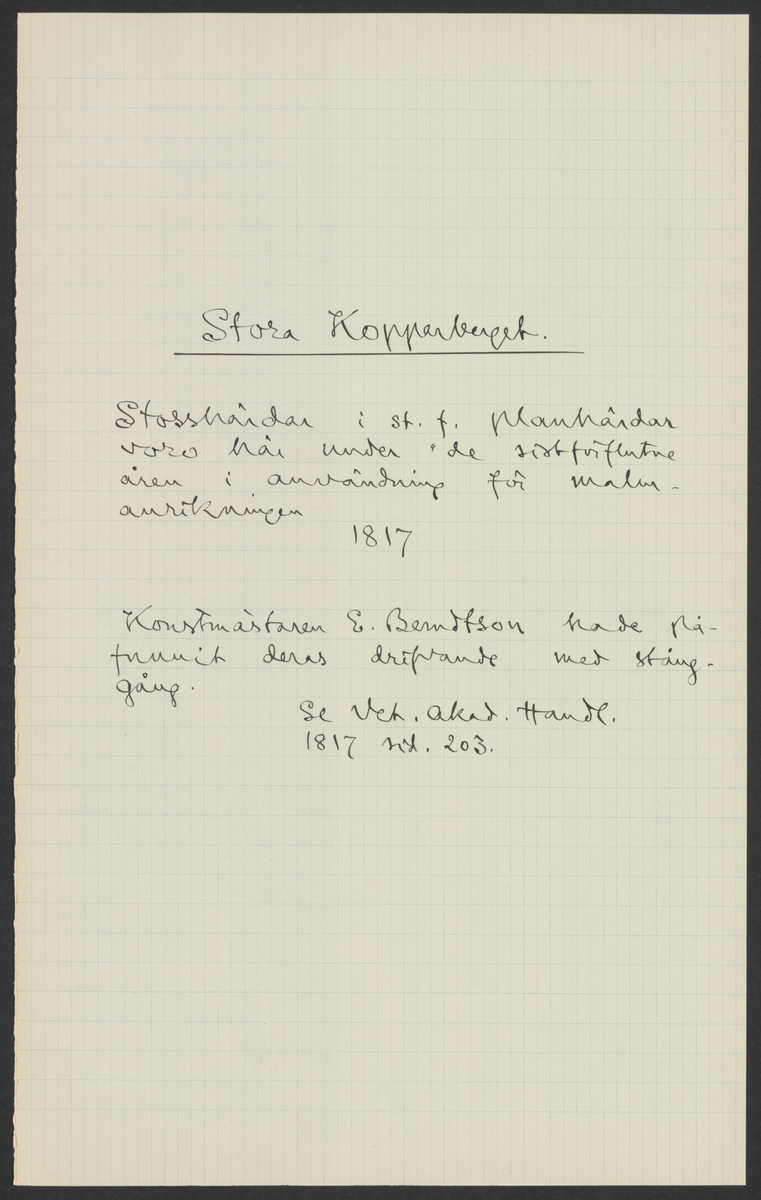 Stora Kopparberget.
Stosshärdar i st. f. planhärdar
voro här under "de sistförflutne
åren i användning för malm-
anrikningen
1817
Konstmästaren E. Berndtson hade på-
funnit deras drifvande med stång-
gång.
Se Vet. Akad. Handl.
1817 sid. 203.